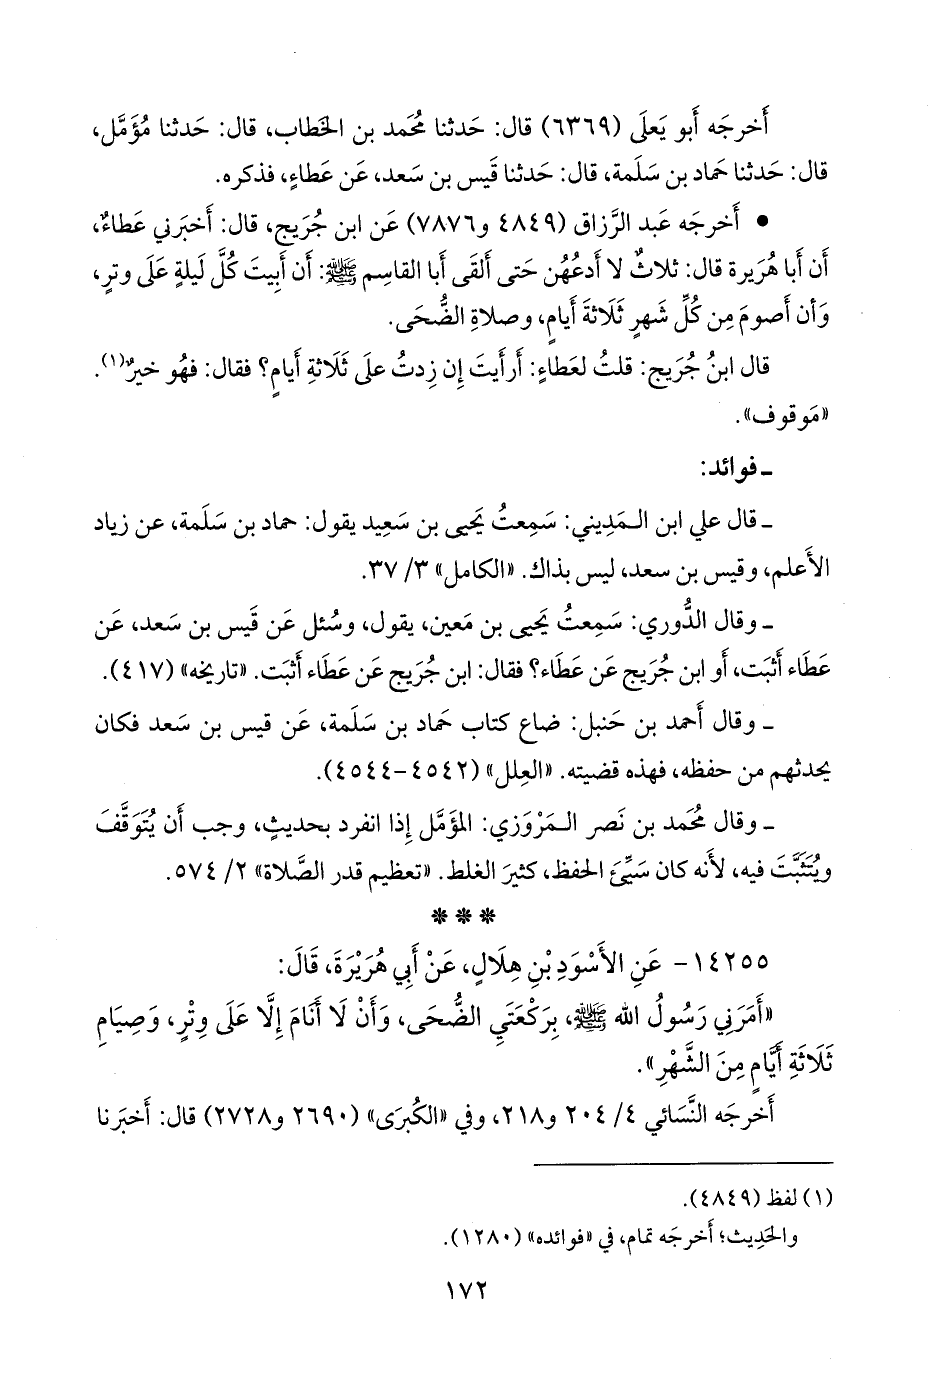 أَخرجَه أَبو يَعلَى (٦٣٦٩) قال: حَدثنا مُحَمد بن الخَطاب، قال: حَدثنا مُؤَمَّل،
قال: حَدثنا حَماد بن سَلَمة، قال: حَدثنا قَيس بن سَعد، عَن عَطاءٍ، فذكره.
• أَخرجَه عَبد الرَّزاق (٤٨٤٩ و٧٨٧٦) عَن ابن جُرَيج، قال: أَخبَرني عَطاءٌ،
أَن أَبا هُرَيرة قال: ثلاثٌ لا أَدعُهُن حَتى أَلقَى أَبا القاسِم ﷺ: أَن أَبيتَ كُلَّ ليلةٍ عَلى وترٍ،
وَأن أَصومَ مِن كُلِّ شَهرٍ ثَلَاثةَ أَيامٍ، وصلاةِ الضُّحَى.
قال ابنُ جُرَيج: قلتُ لعَطاءٍ: أَرأَيتَ إِن زِدتُ علَى ثَلَاثةِ أَيامٍ؟ فقال: فهُو خيرٌ(١).
«مَوقوف».
ـ فوائد:
ـ قال علي ابن المَدِيني: سَمِعتُ يَحيى بن سَعِيد يقول: حماد بن سَلَمة، عن زياد
الأَعلم، وقيس بن سعد، ليس بذاك. «الكامل» ٣/ ٣٧.
ـ وقال الدُّوري: سَمِعتُ يَحيى بن مَعين، يقول، وسُئل عَن قَيس بن سَعد، عَن
عَطَاء أَثبَت، أَو ابن جُرَيج عَن عَطَاء؟ فقال: ابن جُرَيج عَن عَطَاء أَثبَت. «تاريخه» (٤١٧).
ـ وقال أَحمد بن حَنبل: ضاع كتاب حَماد بن سَلَمة، عَن قيس بن سَعد فكان
يحدثهم من حفظه، فهذه قضيته. «العِلل» (٤٥٤٢-٤٥٤٤).
ـ وقال مُحمد بن نَصر المَرْوَزي: المؤَمَّل إِذا انفرد بحديثٍ، وجب أَن يُتَوَقَّفَ
ويُتَثبَّتَ فيه، لأَنه كان سَيِّئَ الحفظ، كثيرَ الغلط. «تعظيم قدر الصَّلاة» ٢/ ٥٧٤.
* * *
١٤٢٥٥- عَنِ الأَسْوَدِ بْنِ هِلَالٍ، عَنْ أَبِي هُرَيْرَةَ، قَالَ:
«أَمَرَنِي رَسُولُ الله ﷺ، بِرَكْعَتَيِ الضُّحَى، وَأَنْ لَا أَنَامَ إِلَّا عَلَى وِتْرٍ، وَصِيَامِ
ثَلَاثَةِ أَيَّامٍ مِنَ الشَّهْرِ».
أَخرجَه النَّسَائي ٤/ ٢٠٤ و٢١٨، وفي «الكُبرَى» (٢٦٩٠ و٢٧٢٨) قال: أَخبَرنا
(١) لفظ (٤٨٤٩).
والحَدِيث؛ أَخرجَه تمام، في «فوائده» (١٢٨٠).
١٧٢